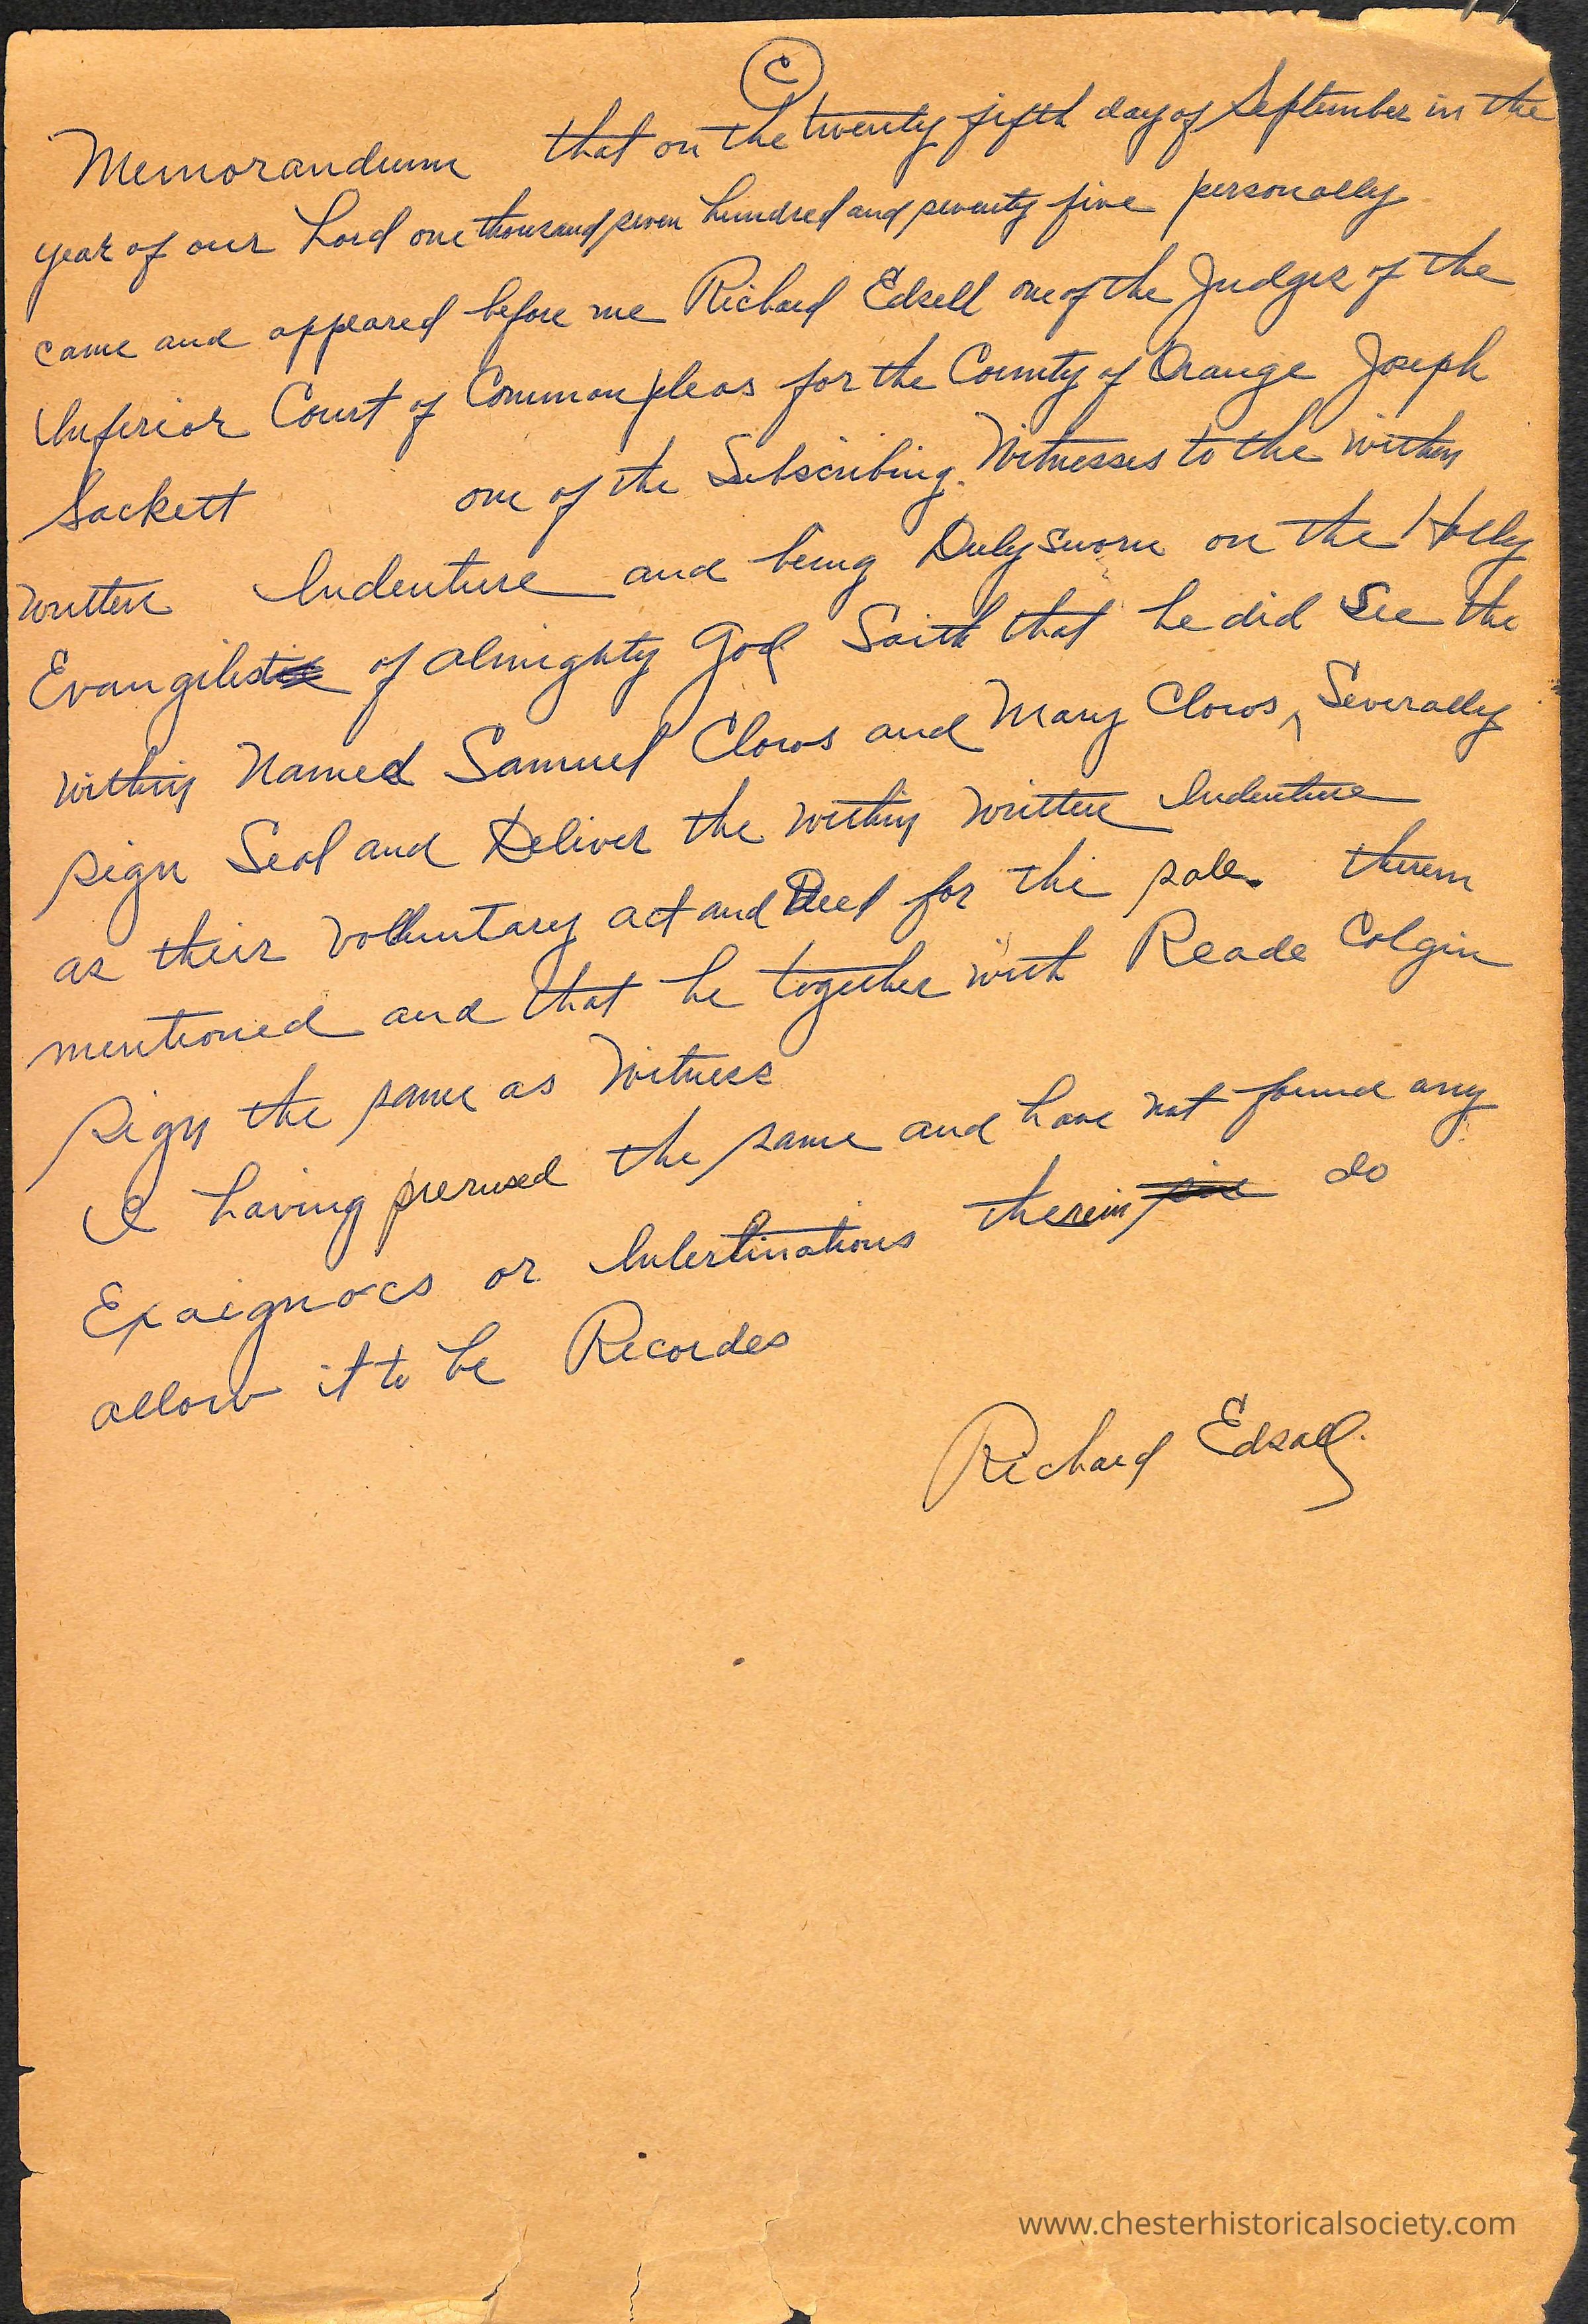 C
Memorandum that on the twenty fifth day of September in the
year of our Lord one thousand seven hundred and seventy five personally
came and appeared before me Richard Edsell one of the Judges of the
Inferior Court of Common pleas for the County of Orange Joseph
Sackett one of the Subscribing Witnesses to the within
written Indenture and being Duly sworn on the Holly
Evangilist of almighty God Saith that he did See the
within Named Samuel Clows and Mary Clows ^ Severally
sign Seal and Deliver the within written Indenture
as their volluntary act and Deed for the sale. therein
mentioned and that he together with Reade Colgin
Sign the same as Witness
I having prerused the same and have not found any
Exaignocs or Interlinations therein do
allow it to be Recordes
Richard Edsall.
www.chesterhistoricalsociety.com